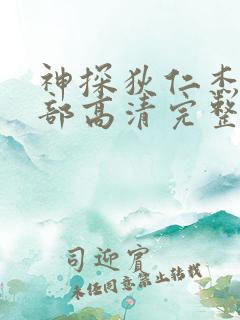 神探狄仁杰
部高清完整
司迎宾
未经同意禁止转载